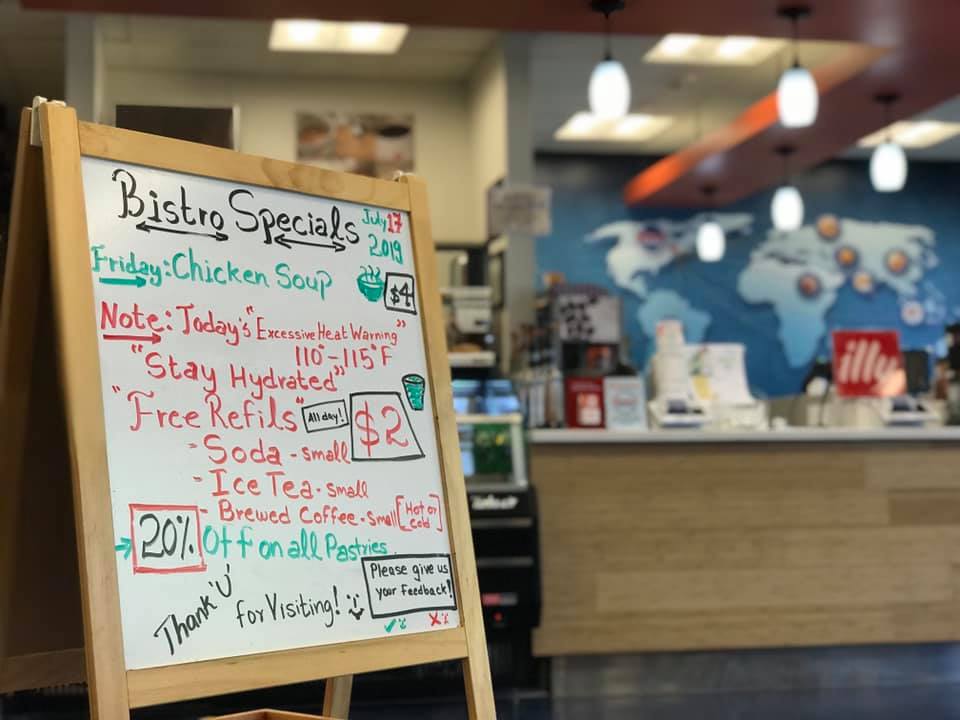 Bistro Specials
July 17
2019
Friday: Chicken Soup
$4
Note: Today's "Excessive Heat Warning"
110° - 115° F
"Stay Hydrated"
"Free Refils" All day! $2
- Soda - small
- Ice Tea - small
- Brewed Coffee - small [Hot or
Cold]
20% Off on all Pastries.
Please give us
your feedback!
Thank 'U' for Visiting!
illy